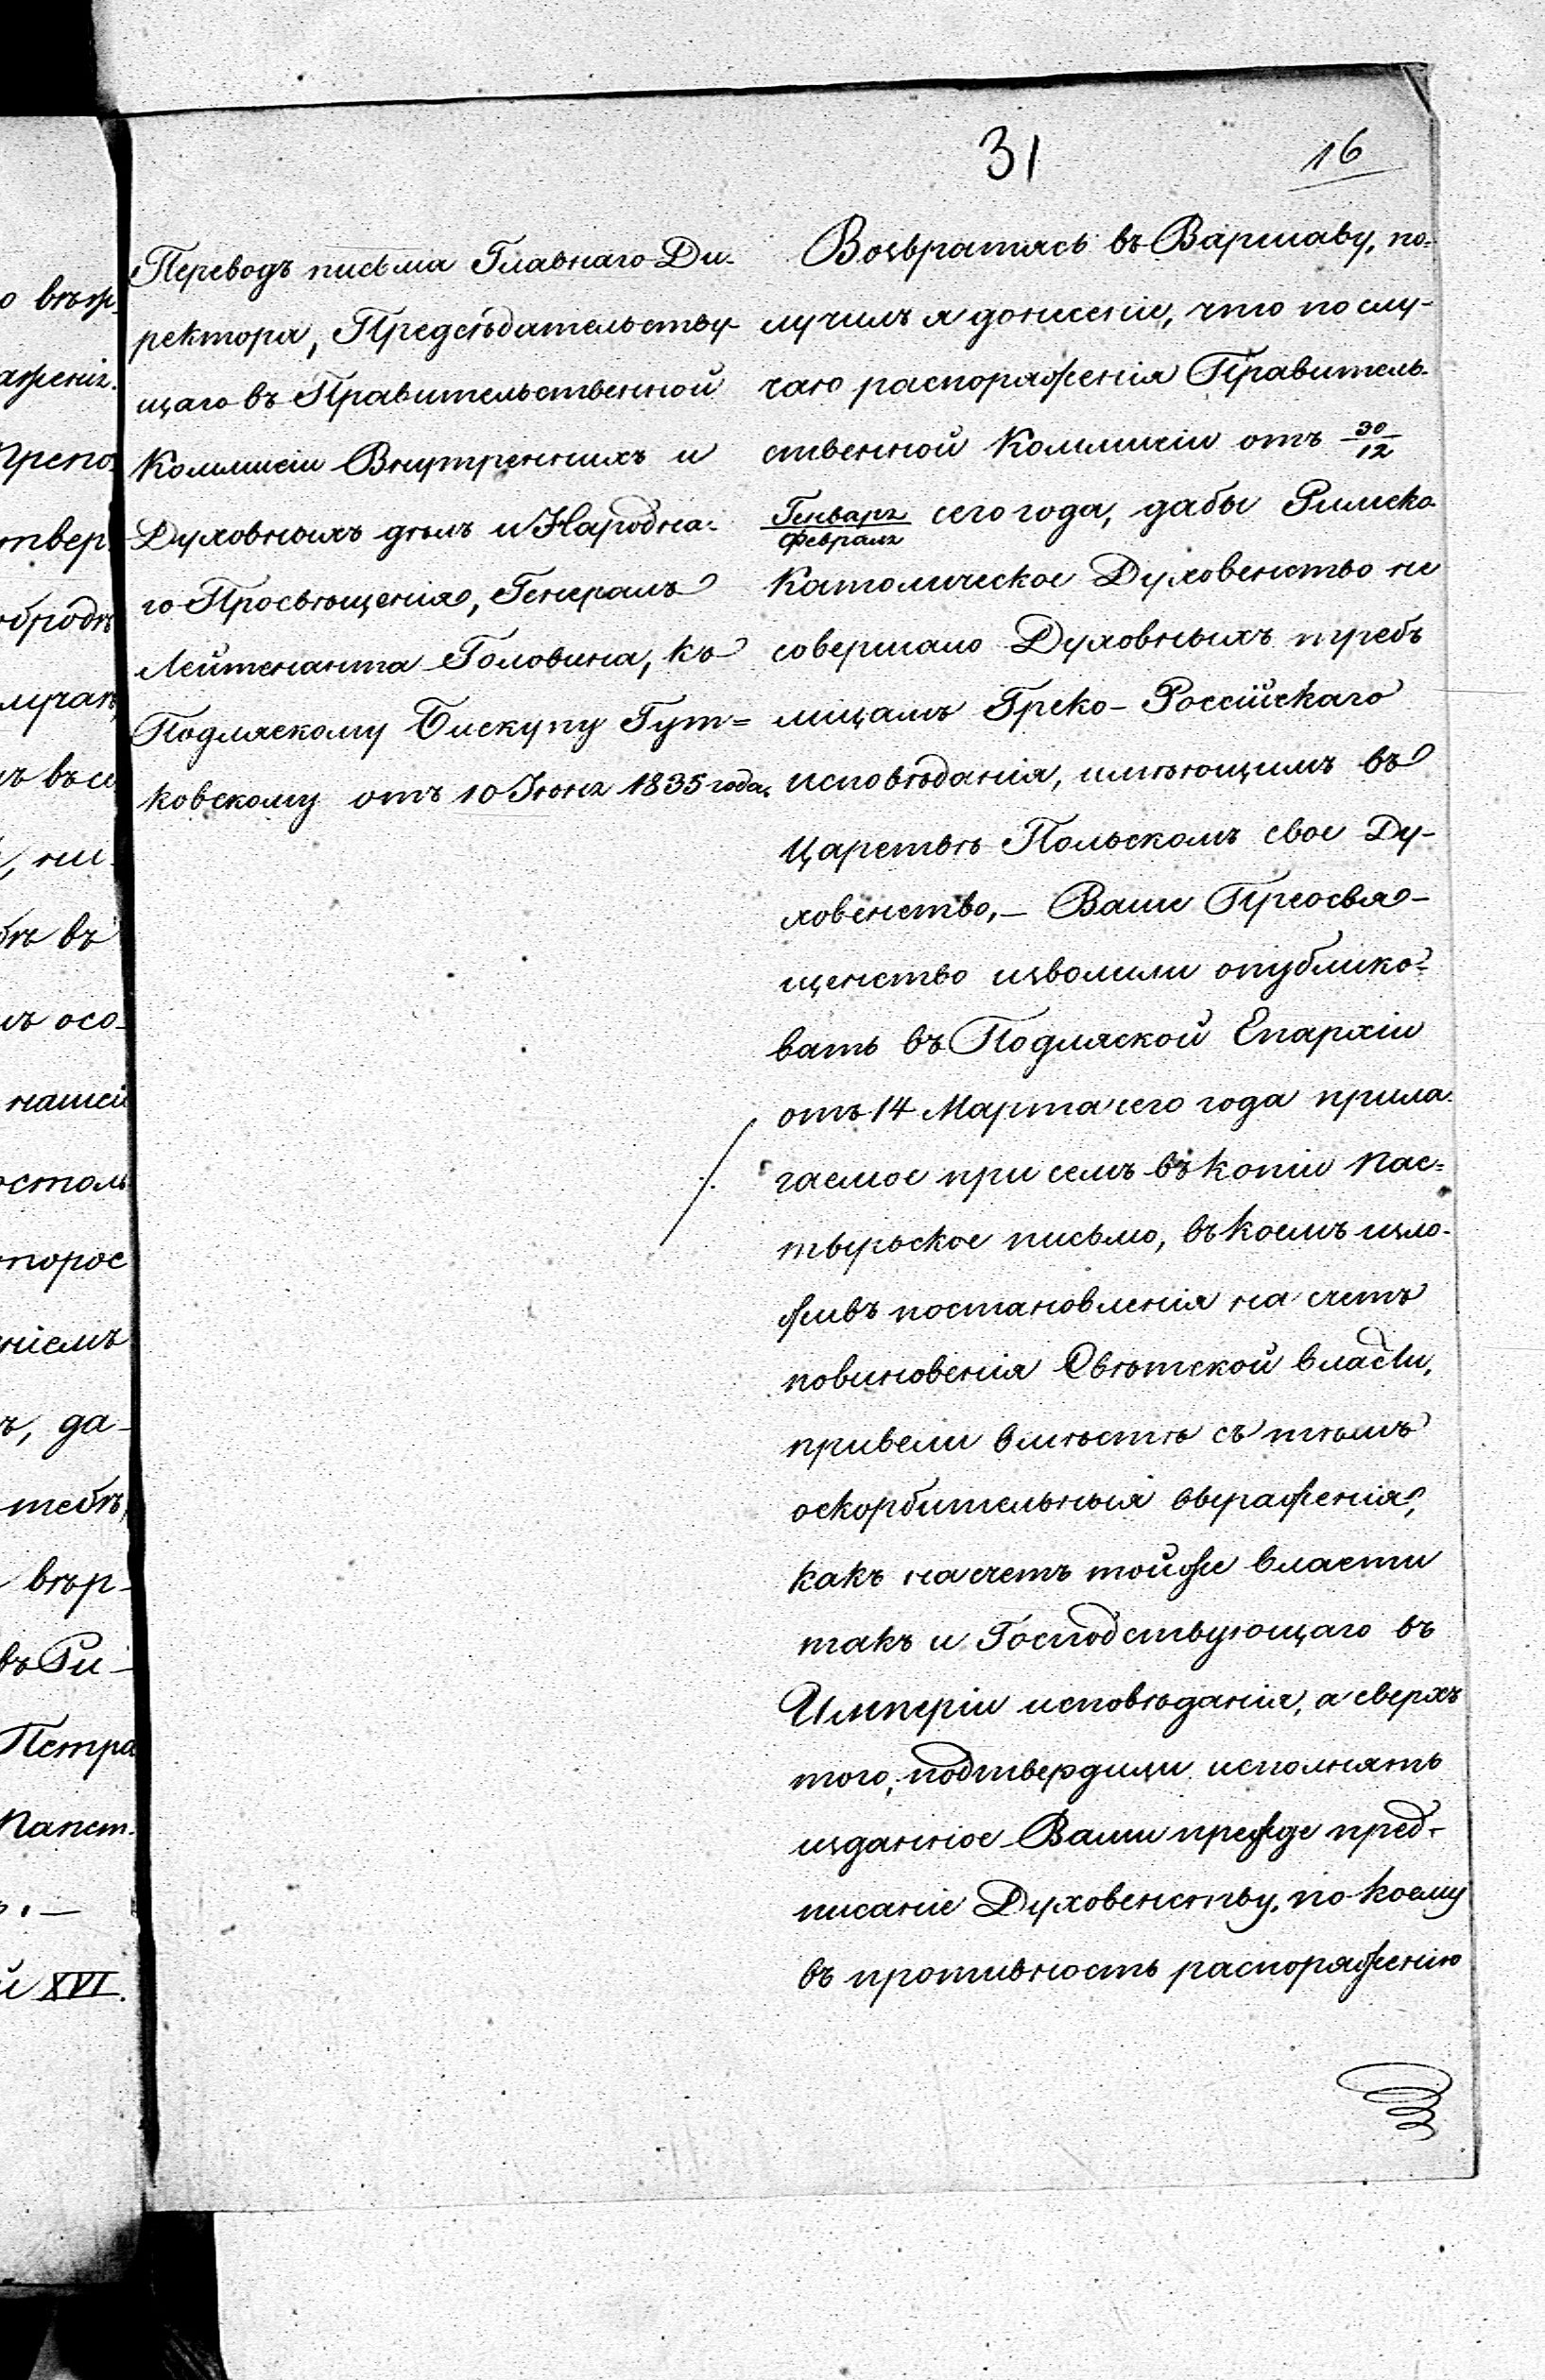 31
16
Переводъ письма Главнаго Ди-
ректора, Предсѣдательству
щаго въ Правительственной
Коммисіи Внутреннихъ и
Духовныхъ дѣлъ и Народна-
го Просвѣщенія, Генералъ
Лейтенанта Головина, къ
Подляскому Бискупу Гут=
ковскому отъ 10 Іюня 1835 года.
Возвратясь въ Варшаву, по-
лучилъ я донесеніе, что по слу-
чаю распоряженія Правитель-
ственной Коммисіи отъ 30/12
Генваря/Февраля сего года, дабы Римско
Католическое Духовенство не
совершало Духовныхъ требъ
лицамъ Греко-Россійскаго
исповѣданія, имѣющимъ въ
Царствѣ Польскомъ свое Ду-
ховенство,- Ваше Преосвя-
щенство изволили опублико-
вать въ Подляской Епархіи
отъ 14 Марта сего года прила-
гаемое при семъ въ копіи Пас-
тырьское письмо, въ коемъ изло-
живъ постановленія на счетъ
повиновенія Свѣтской власти,
привели вмѣстѣ съ тѣмъ
оскорбительныя выраженія,
какъ на счетъ тойже власти
такъ и Господствующаго въ
Имперіи исповѣданія, а сверхъ
того, подтвердили исполнять
изданное Вами прежде пред-
писаніе Духовенству, по коему
въ противность распоряженію
о вѣж
аженія.
препо
твер
лучаѣ,
, ни-
бѣ въ
ъ осо-
нашей
остоль
ніемъ
ъ, да-
тебѣ,
вѣр-
въ Ри-
Петра
Папст.
й XVI.